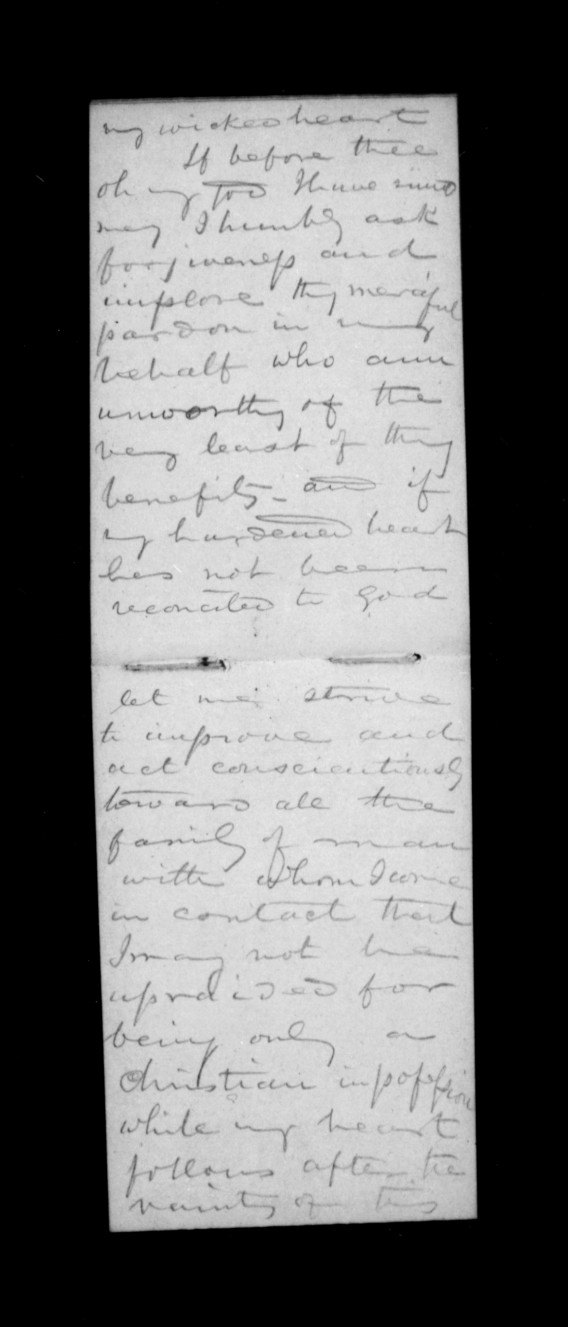 my wicked heart
If before thee
oh my God I have sined
may I humbly ask
forgiveness and
implore thy merciful
pardon in my
behalf who am
unworthy of the
very least of thy
benefits - and if
my hardened heart
has not been
reconciled to God
let me strive
to improve and
act conscientiously
toward all the
family of man
with whom I come
in contact that
I may not be
upraided for
being only a
Christian in possession
while my heart
follows after the
vainty of this